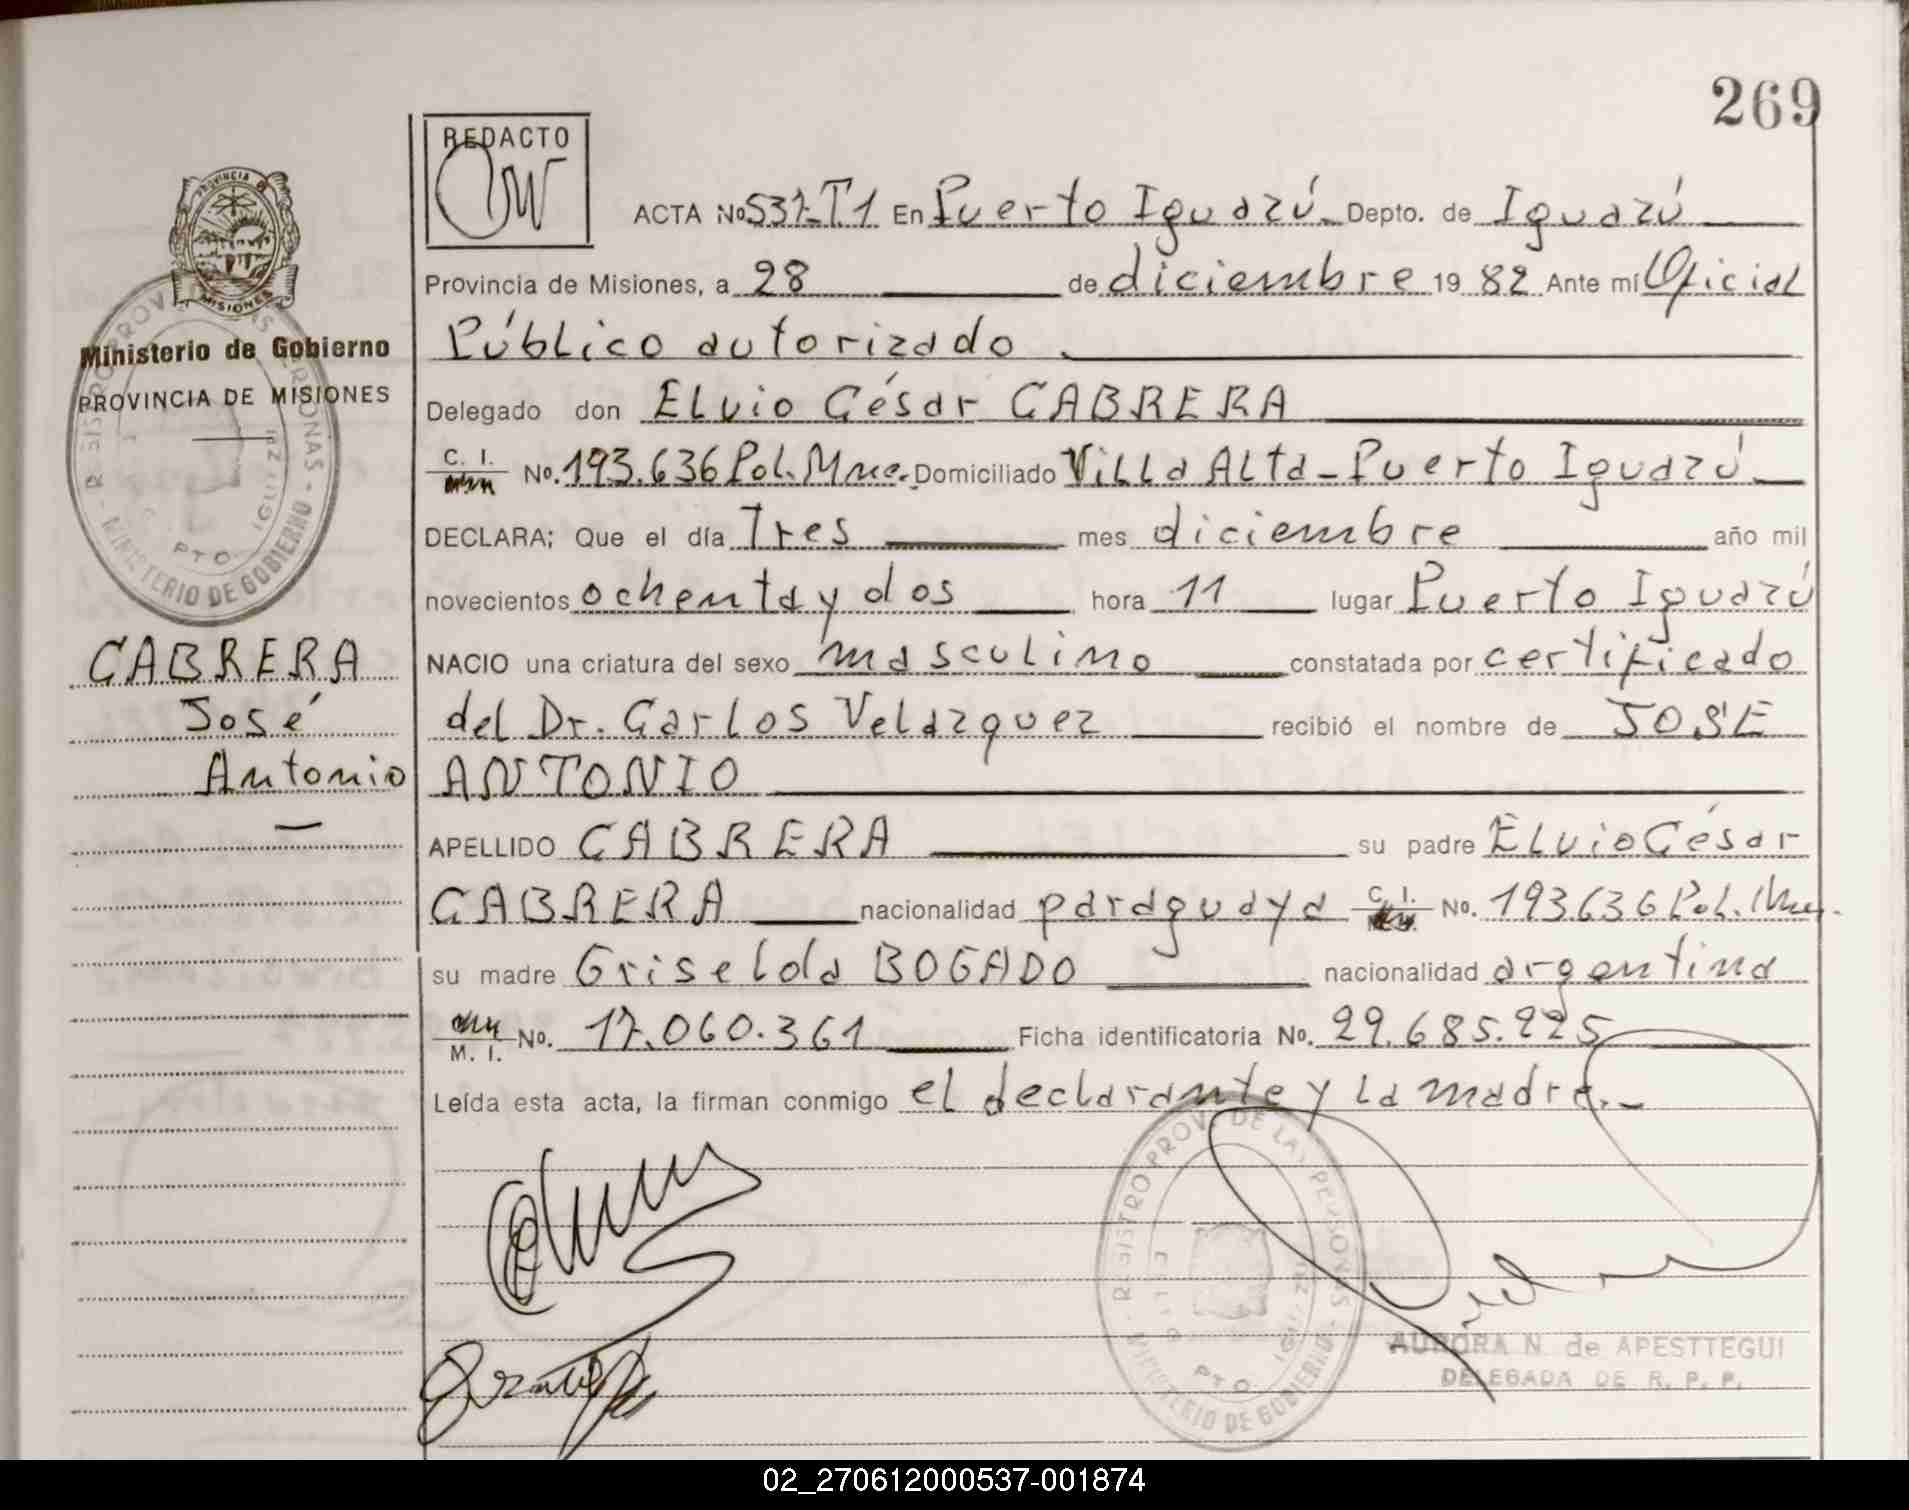 269
REDACTO
ACTA No 537-T.1 En Puerto Iguazú Depto. de Iguazú
Provincia de Misiones, a 28 de diciembre 19 82 Ante mí Oficial
Público autorizado
Delegado don ELvio César CABRERA
C. I. No. 193.636 Pol. Mnes. Domiciliado ViLLa ALta - Puerto Iguazú
DECLARA; Que el día Tres mes diciembre año mil
novecientos ochenta y dos hora 11 lugar Puerto Iguazú
NACIO una criatura del sexo masculino constatada por certificado
del Dr. Carlos Velazquez recibió el nombre de JOSE
ANTONIO
APELLIDO CABRERA su padre ELvio César
CABRERA nacionalidad paraguaya C. I. No. 193.636 Pol. Mnes.
su madre Griselda BOGADO nacionalidad argentina
M. I. No. 17.060.361 Ficha identificatoria No. 29.685.225
Leída esta acta, la firman conmigo el declarante y la madre.
PROVINCIA DE MISIONES
Ministerio de Gobierno
PROVINCIA DE MISIONES
REGISTRO PROV. DE LAS PERSONAS - MINISTERIO DE GOBIERNO
PTO. IGUAZU
CABRERA
José
Antonio
REGISTRO PROV. DE LAS PERSONAS - MINISTERIO DE GOBIERNO
PTO. IGUAZU
AURORA N. de APESTTEGUI
DELEGADA DE R. P. P.
02_270612000537-001874